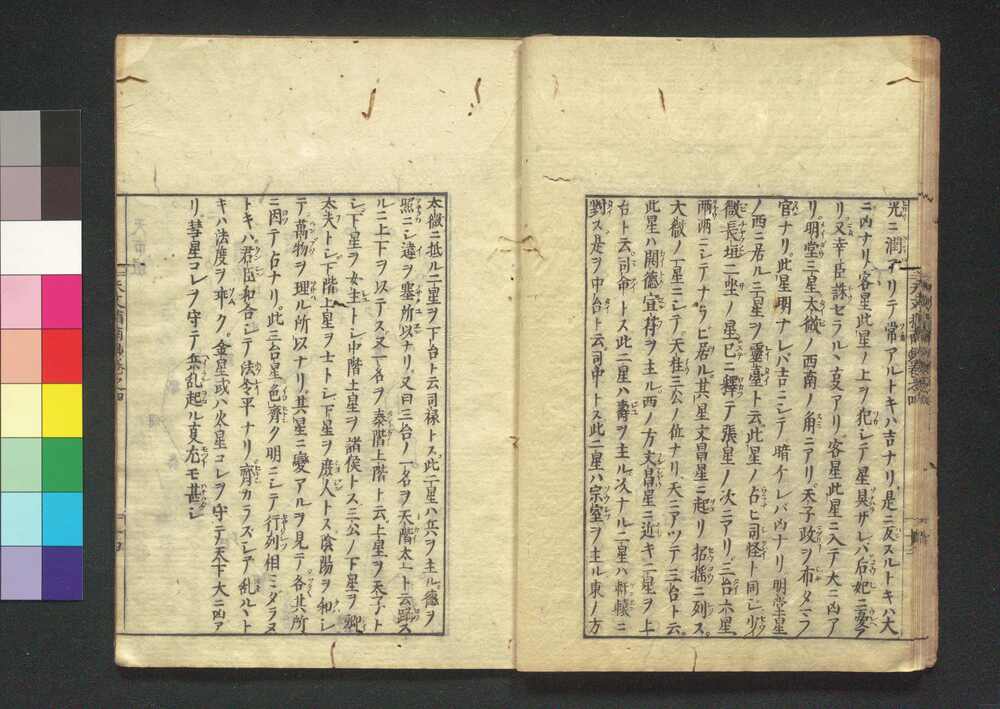 光ニ潤アリテ常アルトキハ吉ナリ是ニ反スルトキハ大
ニ凶ナリ客星此星ノ上ヲ犯シテ星具ザレバ后妃ニ憂ア
リ又幸臣誅セラルヽ事アリ客星此星ニ入テ大ニ凶ア
リ明堂三星太微ノ西南ノ角ニアリ天子政ヲ布タマフ
官ナリ此星明ナレバ吉ニシテ暗ケレバ凶ナリ明堂星
ノ西ニ居ル三星ヲ靈臺ト云此星ノ占ヒ司怪ト同シ少
微長垣二坐ノ星已ニ釋テ張星ノ次ニアリ三台六星
両両ニシテナラビ居ル其星文昌星ニ起リ招揺ニ列ス
大微ノ一星ニシテ天柱三公ノ位ナリ天ニアツテ三台ト云
此星ハ開德宣符ヲ主ル西ノ方文昌星ニ近キ二星ヲ上
台ト云司命トス此二星ハ壽ヲ主ル次ナル二星ハ軒轅ニ
對ス是ヲ中台ト云司中トス此二星ハ宗室ヲ主ル東ノ方
太微ニ抵ル二星ヲ下台ト云司禄トス此二星ハ兵ヲ主ル德ヲ
照ニシ違ヲ塞所以ナリ又曰三台ノ一名ヲ天階太一ト云躡ス
ルニ上下ヲ以テス又一名ヲ泰階上階ト云上星ヲ天子ト
シ下星ヲ女主トシ中階上星ヲ諸侯トス三公ノ下星ヲ卿
太夫トシ下階上星ヲ士トシ下星ヲ庶人トス陰陽ヲ和シ
テ萬物ヲ理ル所以ナリ其星ニ變アルヲ見テ各其所
ニ因テ占ナリ此三台星色齊ク明ニシテ行列相ミダラヌ
トキハ君臣和合シテ法令平ナリ齊カラズシテ乱ルヽト
キハ法度ヲ乖ク金星或ハ火星コレヲ守テ天下大ニ凶ア
リ彗星コレヲ守テ兵乱起ル事尤モ甚シ